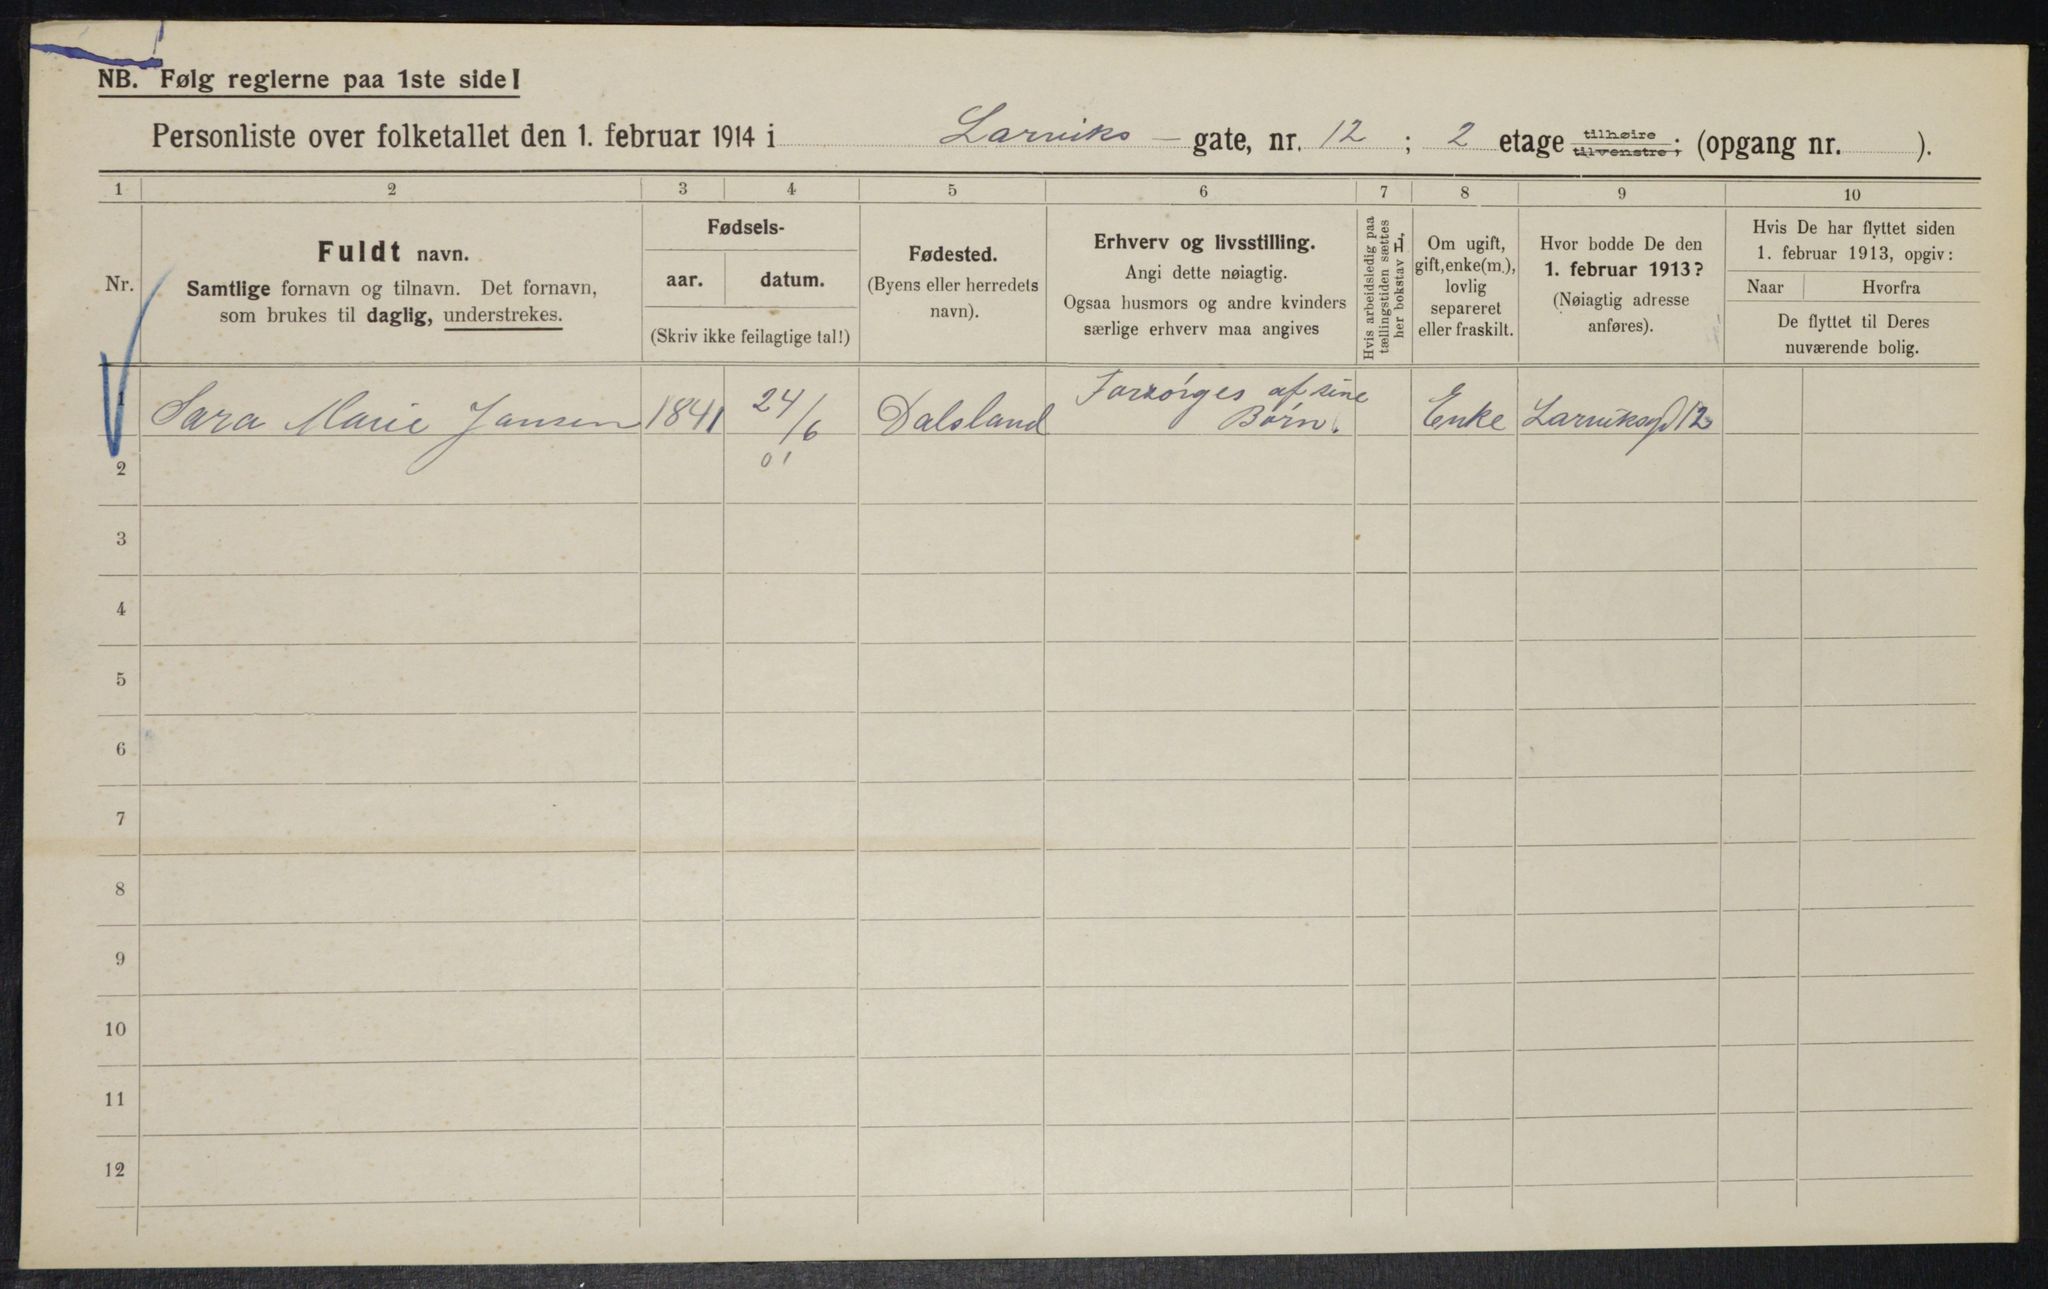 NB. Følg reglerne paa 1ste side!
Personliste over folketallet den 1. februar 1914 i Larviks - gate, nr. 12 ; 2 etage tilhøire tilvenstre; (opgang nr. ).
1 2 3 4 5 6 7 8 9 10
Nr.
Fuldt navn.
Samtlige fornavn og tilnavn. Det fornavn,
som brukes til daglig, understrekes.
Fødsels-
aar. datum.
(Skriv ikke feilagtige tal!)
Fødested.
(Byens eller herredets
navn).
Erhverv og livsstilling.
Angi dette nøiagtig.
Ogsaa husmors og andre kvinders
særlige erhverv maa angives
Hvis arbeidsledig paa
tællingstiden sættes
her bokstav L.
Om ugift,
gift, enke(m.),
lovlig
separeret
eller fraskilt.
Hvor bodde De den
1. februar 1913?
(Nøiagtig adresse
anføres).
Hvis De har flyttet siden
1. februar 1913, opgiv:
Naar Hvorfra
De flyttet til Deres
nuværende bolig.
1 Sara Marie Jansen 1841 24/6 Dalsland Forsørges af sine
Børn. Enke Larviksgd 12
01
2
3
4
5
6
7
8
9
10
11
12